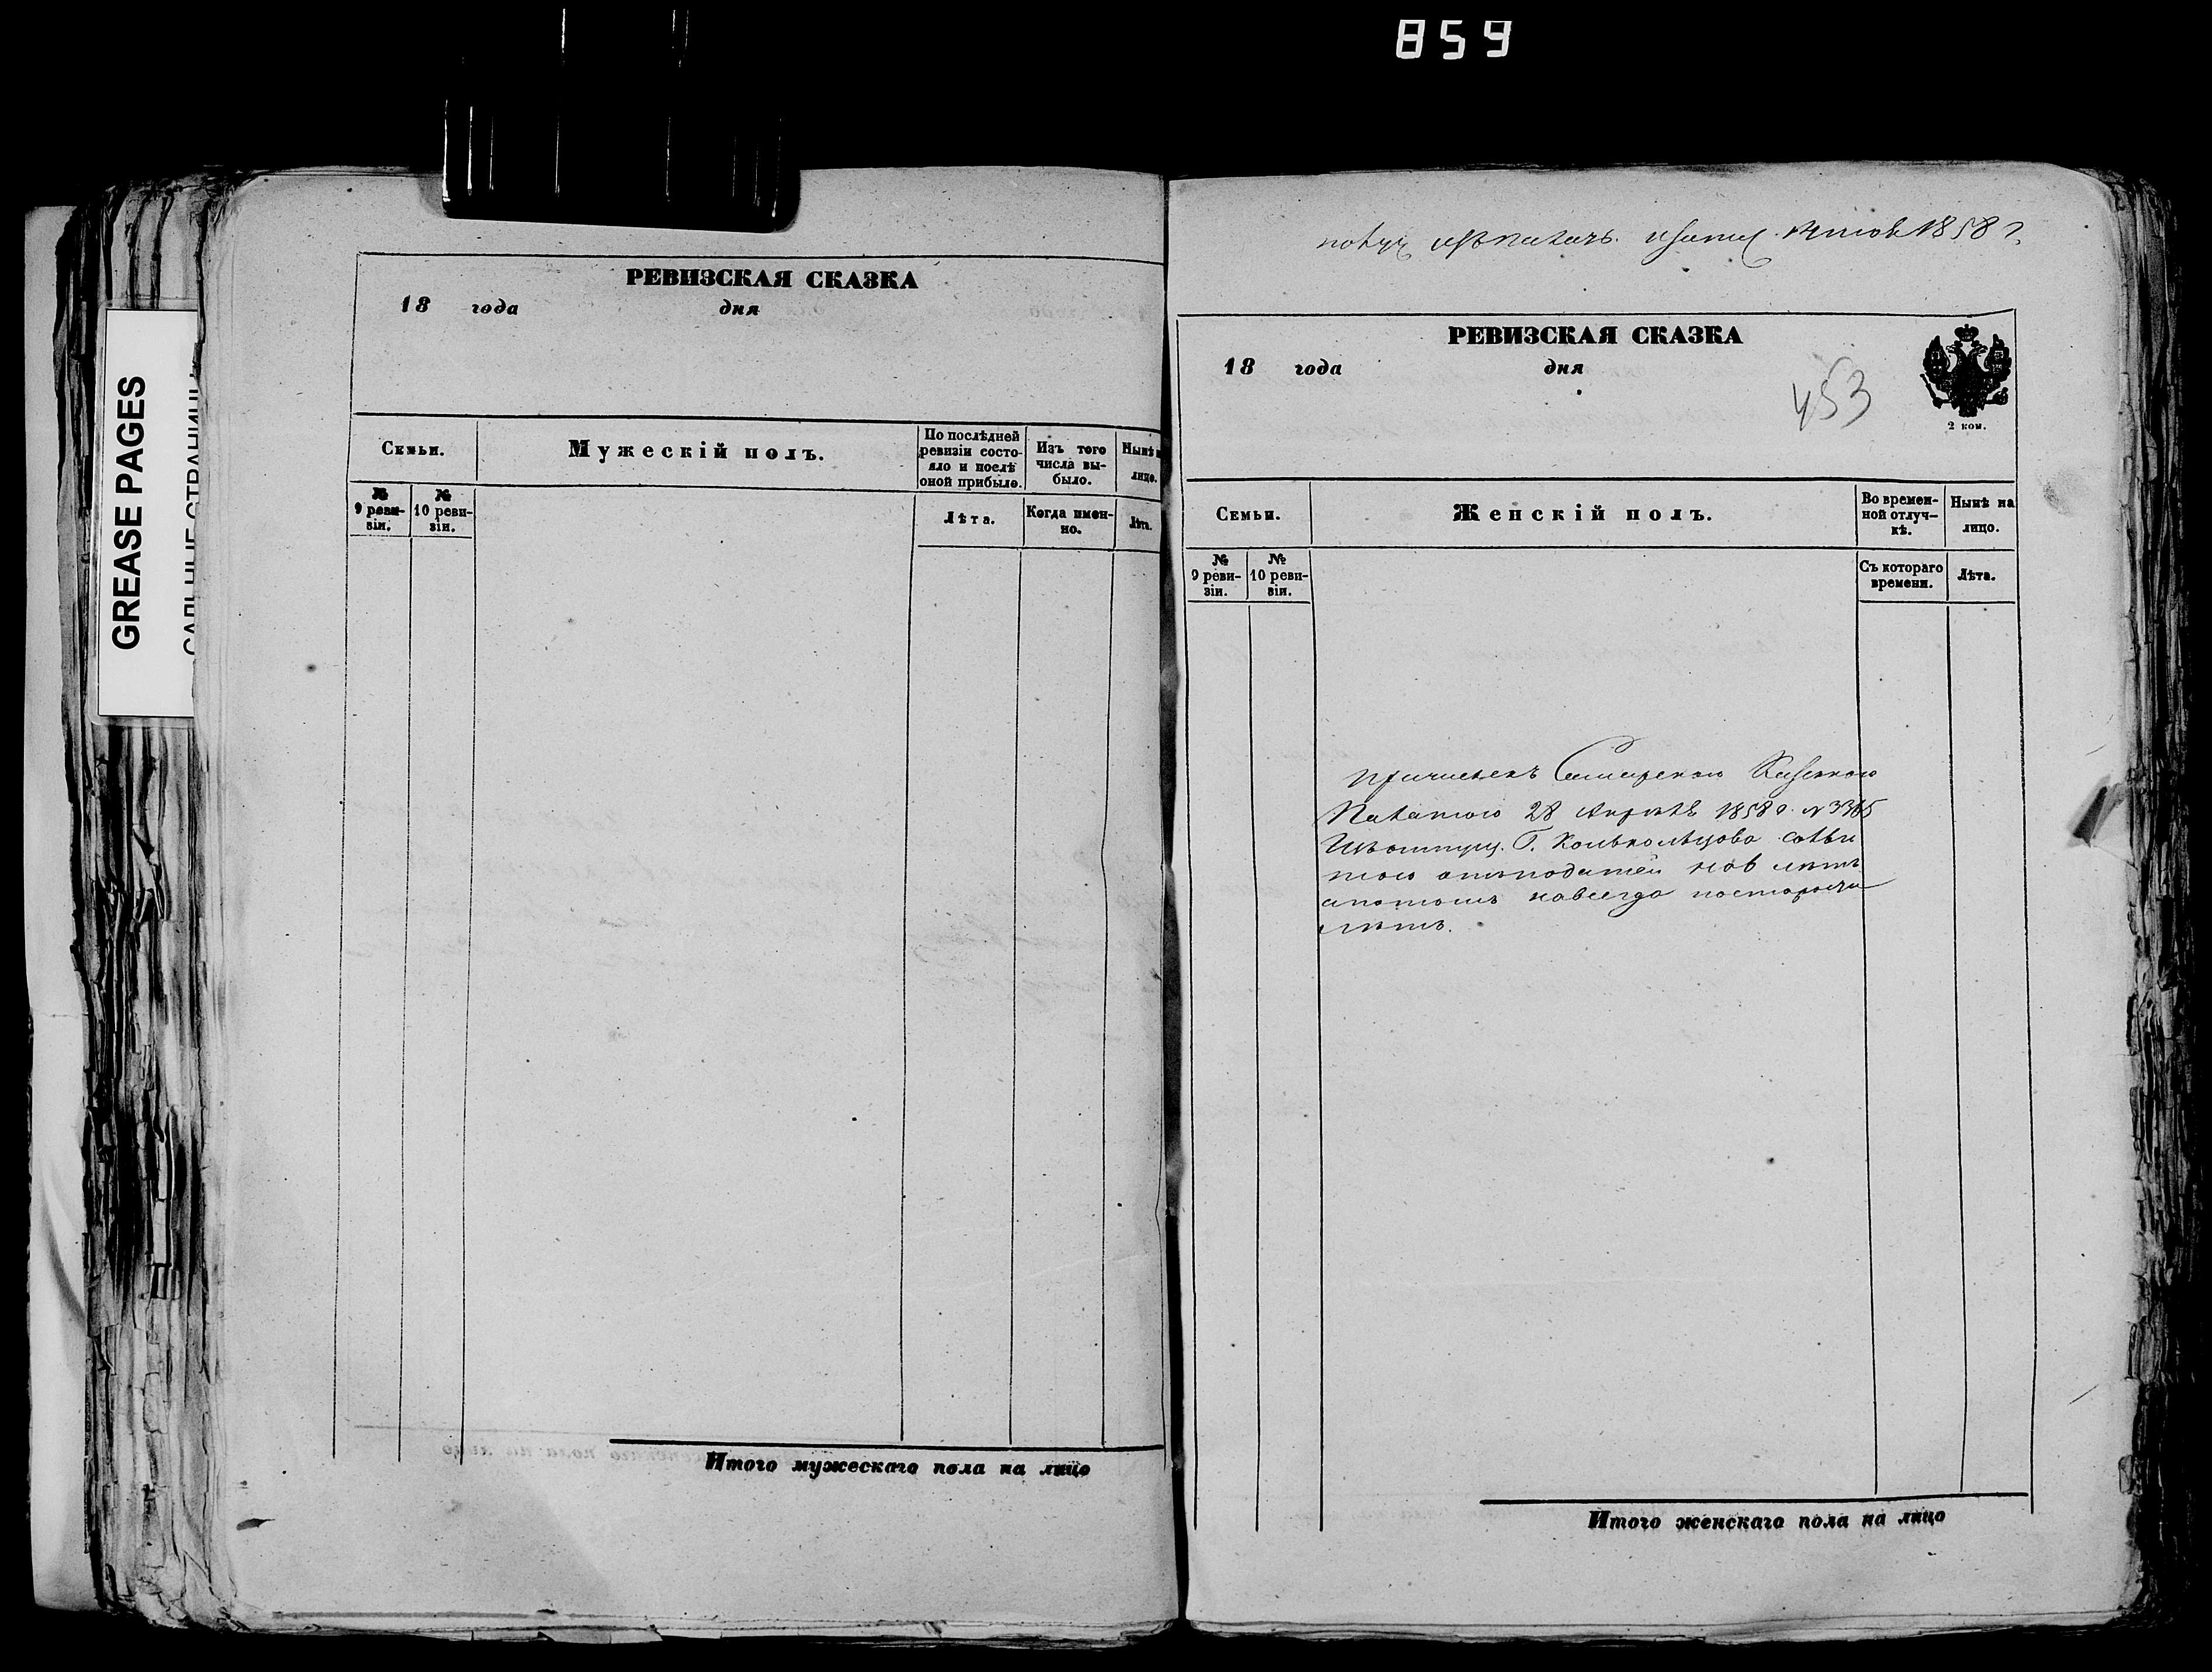 859
GREASE PAGES
РЕВИЗСКАЯ СКАЗКА
18 года дня
Семьи.
Мужескій полъ.
По послѣдней ревизіи состояло и послѣ оной прибыло.
Изъ того числа выбыло.
Нынѣ
лицо.
№ 9 ревизіи.
№ 10 ревизіи.
Лѣта.
Когда именно.
Лѣта.
Итого мужескаго пола на лицо
1858 г.
РЕВИЗСКАЯ СКАЗКА
18 года дня
453
2 коп.
Семьи.
Женскій полъ.
Во временной отлучкѣ.
Нынѣ на лицо.
№ 9 ревизіи.
№ 10 ревизіи.
Съ котораго времени.
Лѣта.
причисленъ Самарскою Казенною
Палатою 28 Апрѣля 1858 г. №
лѣтъ
навсегда
лѣтъ.
Итого женскаго пола на лицо